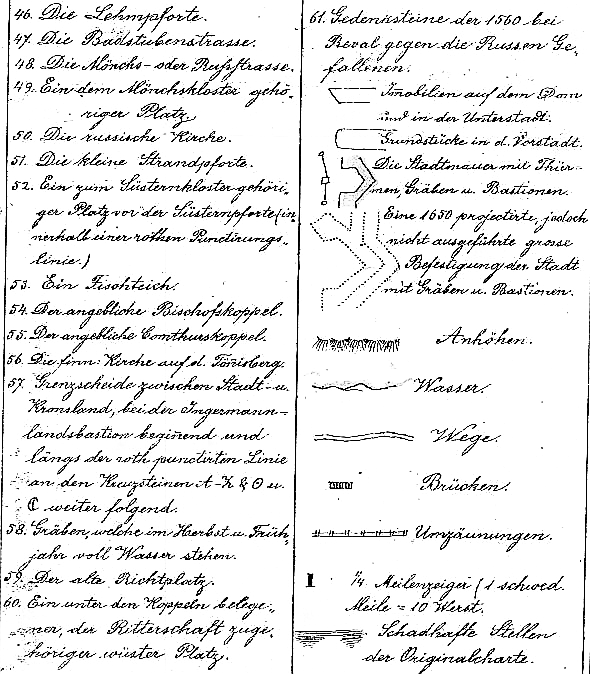 46. Die Lehmpforte.
47. Die Badstubenstrasse.
48. Die Mönchs- oder Rußstrasse.
49. Ein dem Mönchskloster gehö-
riger Platz
50. Die russische Kirche.
51. Die kleine Strandpforte.
52. Ein zum Süsternkloster gehöri-
ger Platz vor der Süsternpforte (in-
nerhalb einer rothen Punctirungs-
linie.)
53. Ein Fischteich.
54. Der angebliche Bischofskoppel.
55. Der angebliche Comthurskoppel.
56. Die finn: Kirche auf d. Tönisberg.
57. Grenzscheide zwischen Stadt- u.
Kronsland, bei der Ingermann-
landsbastion beginend und
längs der roth punctirten Linie
an den Kreuzsteinen A-K & O u.
C weiter folgend.
58. Gräben, welche im Herbst u. Früh-
jahr voll Wasser stehen.
59. Der alte Richtplatz.
60. Ein unter den Koppeln belege-
ner, der Ritterschaft zuge-
höriger wüster Platz.
61. Gedenksteine der 1560 bei
Reval gegen die Russen Ge-
fallenen.
Imobilien auf dem Dom
und in der Unterstadt.
Grundstücke in d. Vorstadt.
Die Stadtmauer mit Thür-
men, Gräben u. Bastionen.
Eine 1650 projectirte, jedoch
nicht ausgeführte grosse
Befestigung der Stadt
mit Gräben u. Bastionen.
Anhöhen.
Wasser.
Wege.
Brücken.
Umzäunungen.
1/4 Meilenzeiger (1 schwed.
Meile = 10 Werst.
Schadhafte Stellen
der Originalcharte.